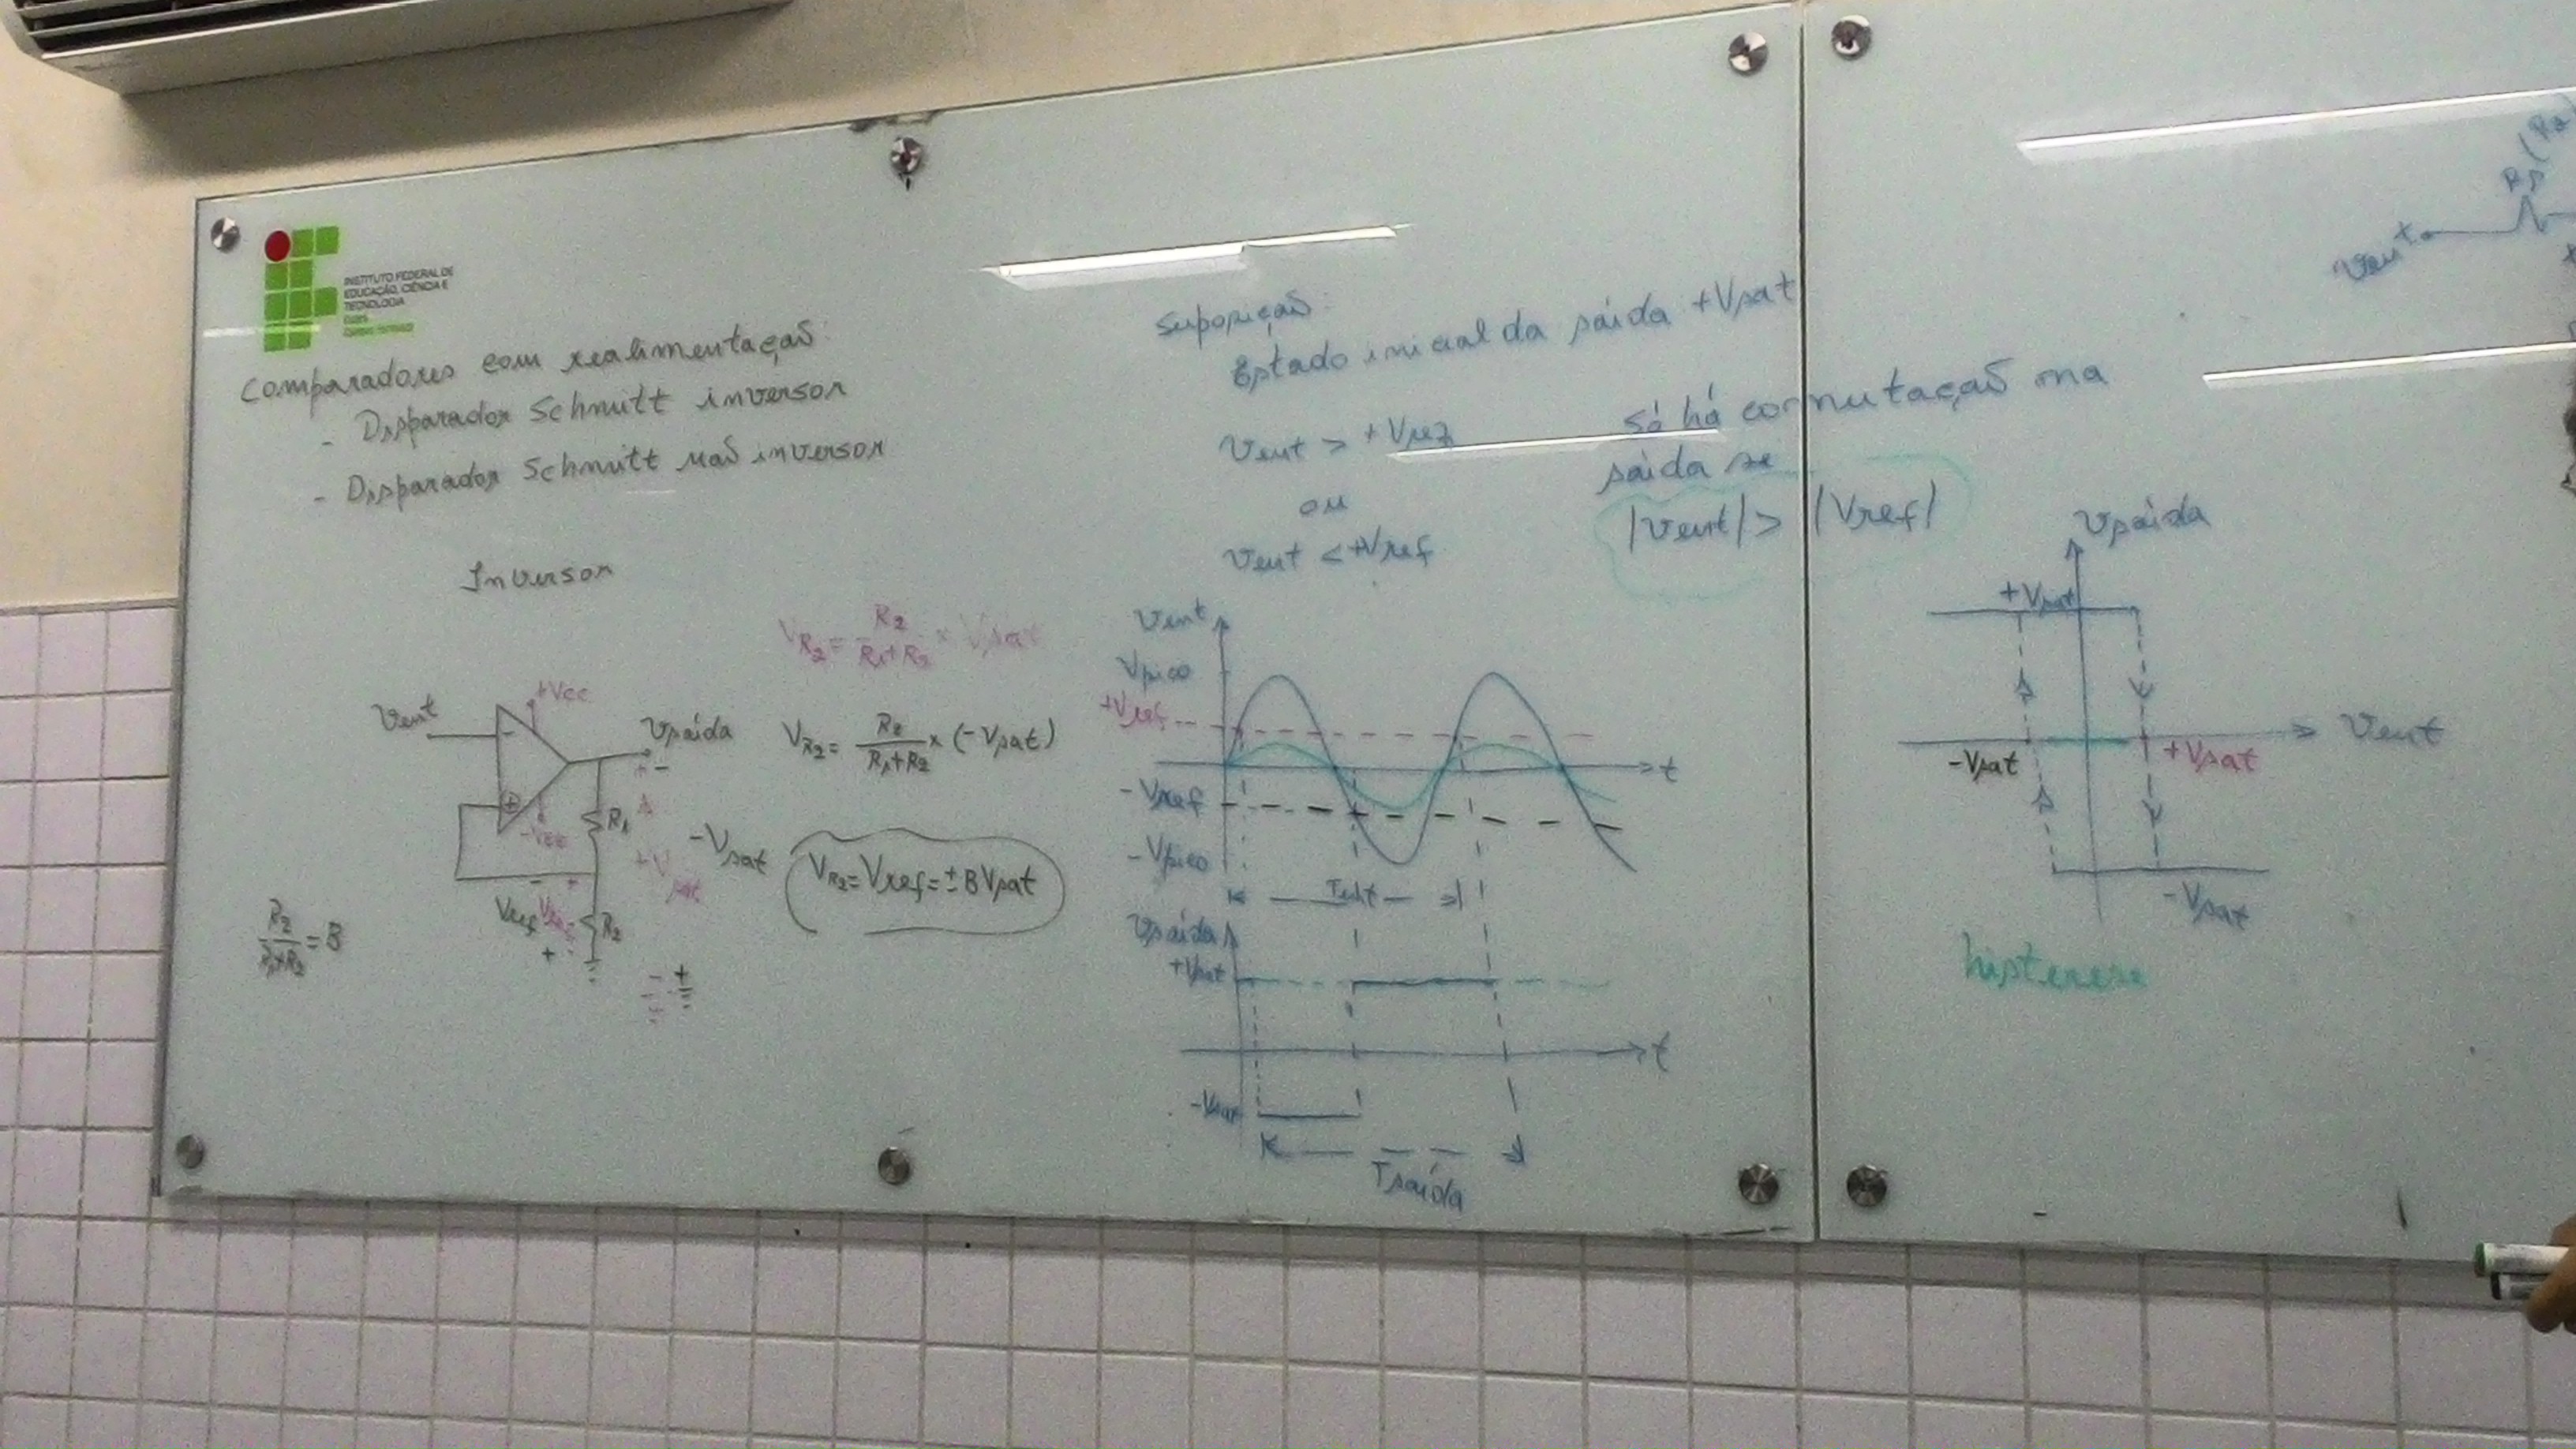 INSTITUTO FEDERAL DE
EDUCAÇÃO, CIÊNCIA E
TECNOLOGIA
Comparadores com realimentação:
- Disparador Schmitt inversor
- Disparador Schmitt não inversor
Inversor
Vent
+Vcc
-Vcc
Vsaída
R1
+Vsat
-Vsat
Vref Vref
R2
R2/(R1+R2) = B
VR2 = R2/(R1+R2) × Vsat
VR2 = R2/(R1+R2) × (-Vsat)
VR2 = Vref = ± B Vsat
Suposição:
Estado inicial da saída +Vsat
Vent > +Vref
ou
Vent < +Vref
Só há comutação na
saída se
|Vent| > |Vref|
Vent
Vpico
+Vref
-Vref
-Vpico
t
Tent
Vsaída
+Vsat
t
-Vsat
Tsaída
Vsaída
+Vsat
Vent
-Vsat
+Vsat
-Vsat
histerese
Vent